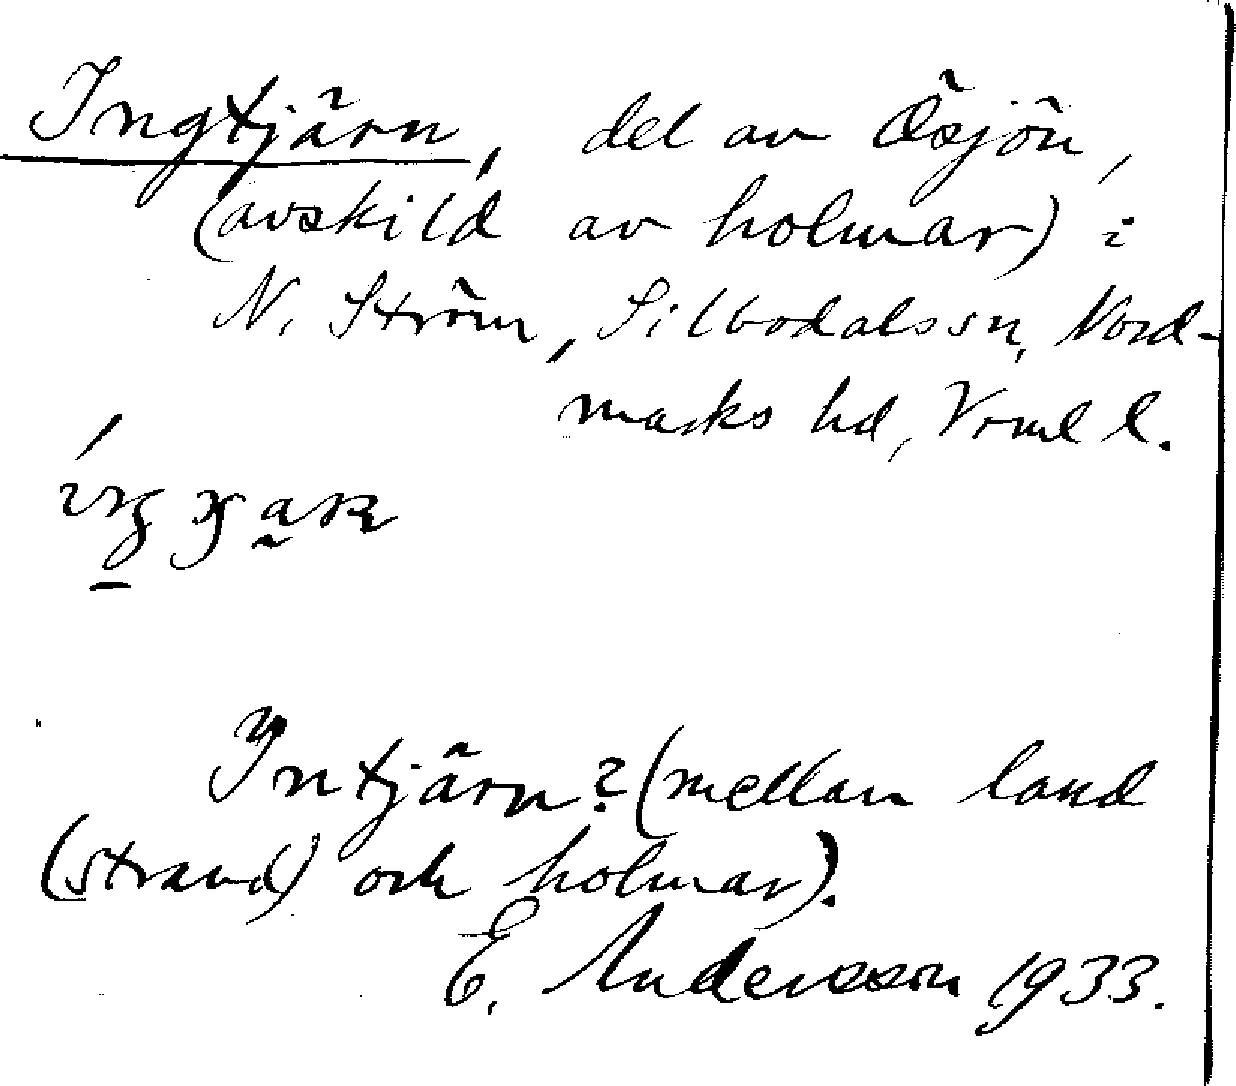 Ingtjärn, del av Ösjön,
(avskild av holmar) i
N. Ström, Silbodals sn, Nord-
marks hd, Vrml l.
Intjärn? (mellan land
(strand) och holmar).
E. Andersson 1933.